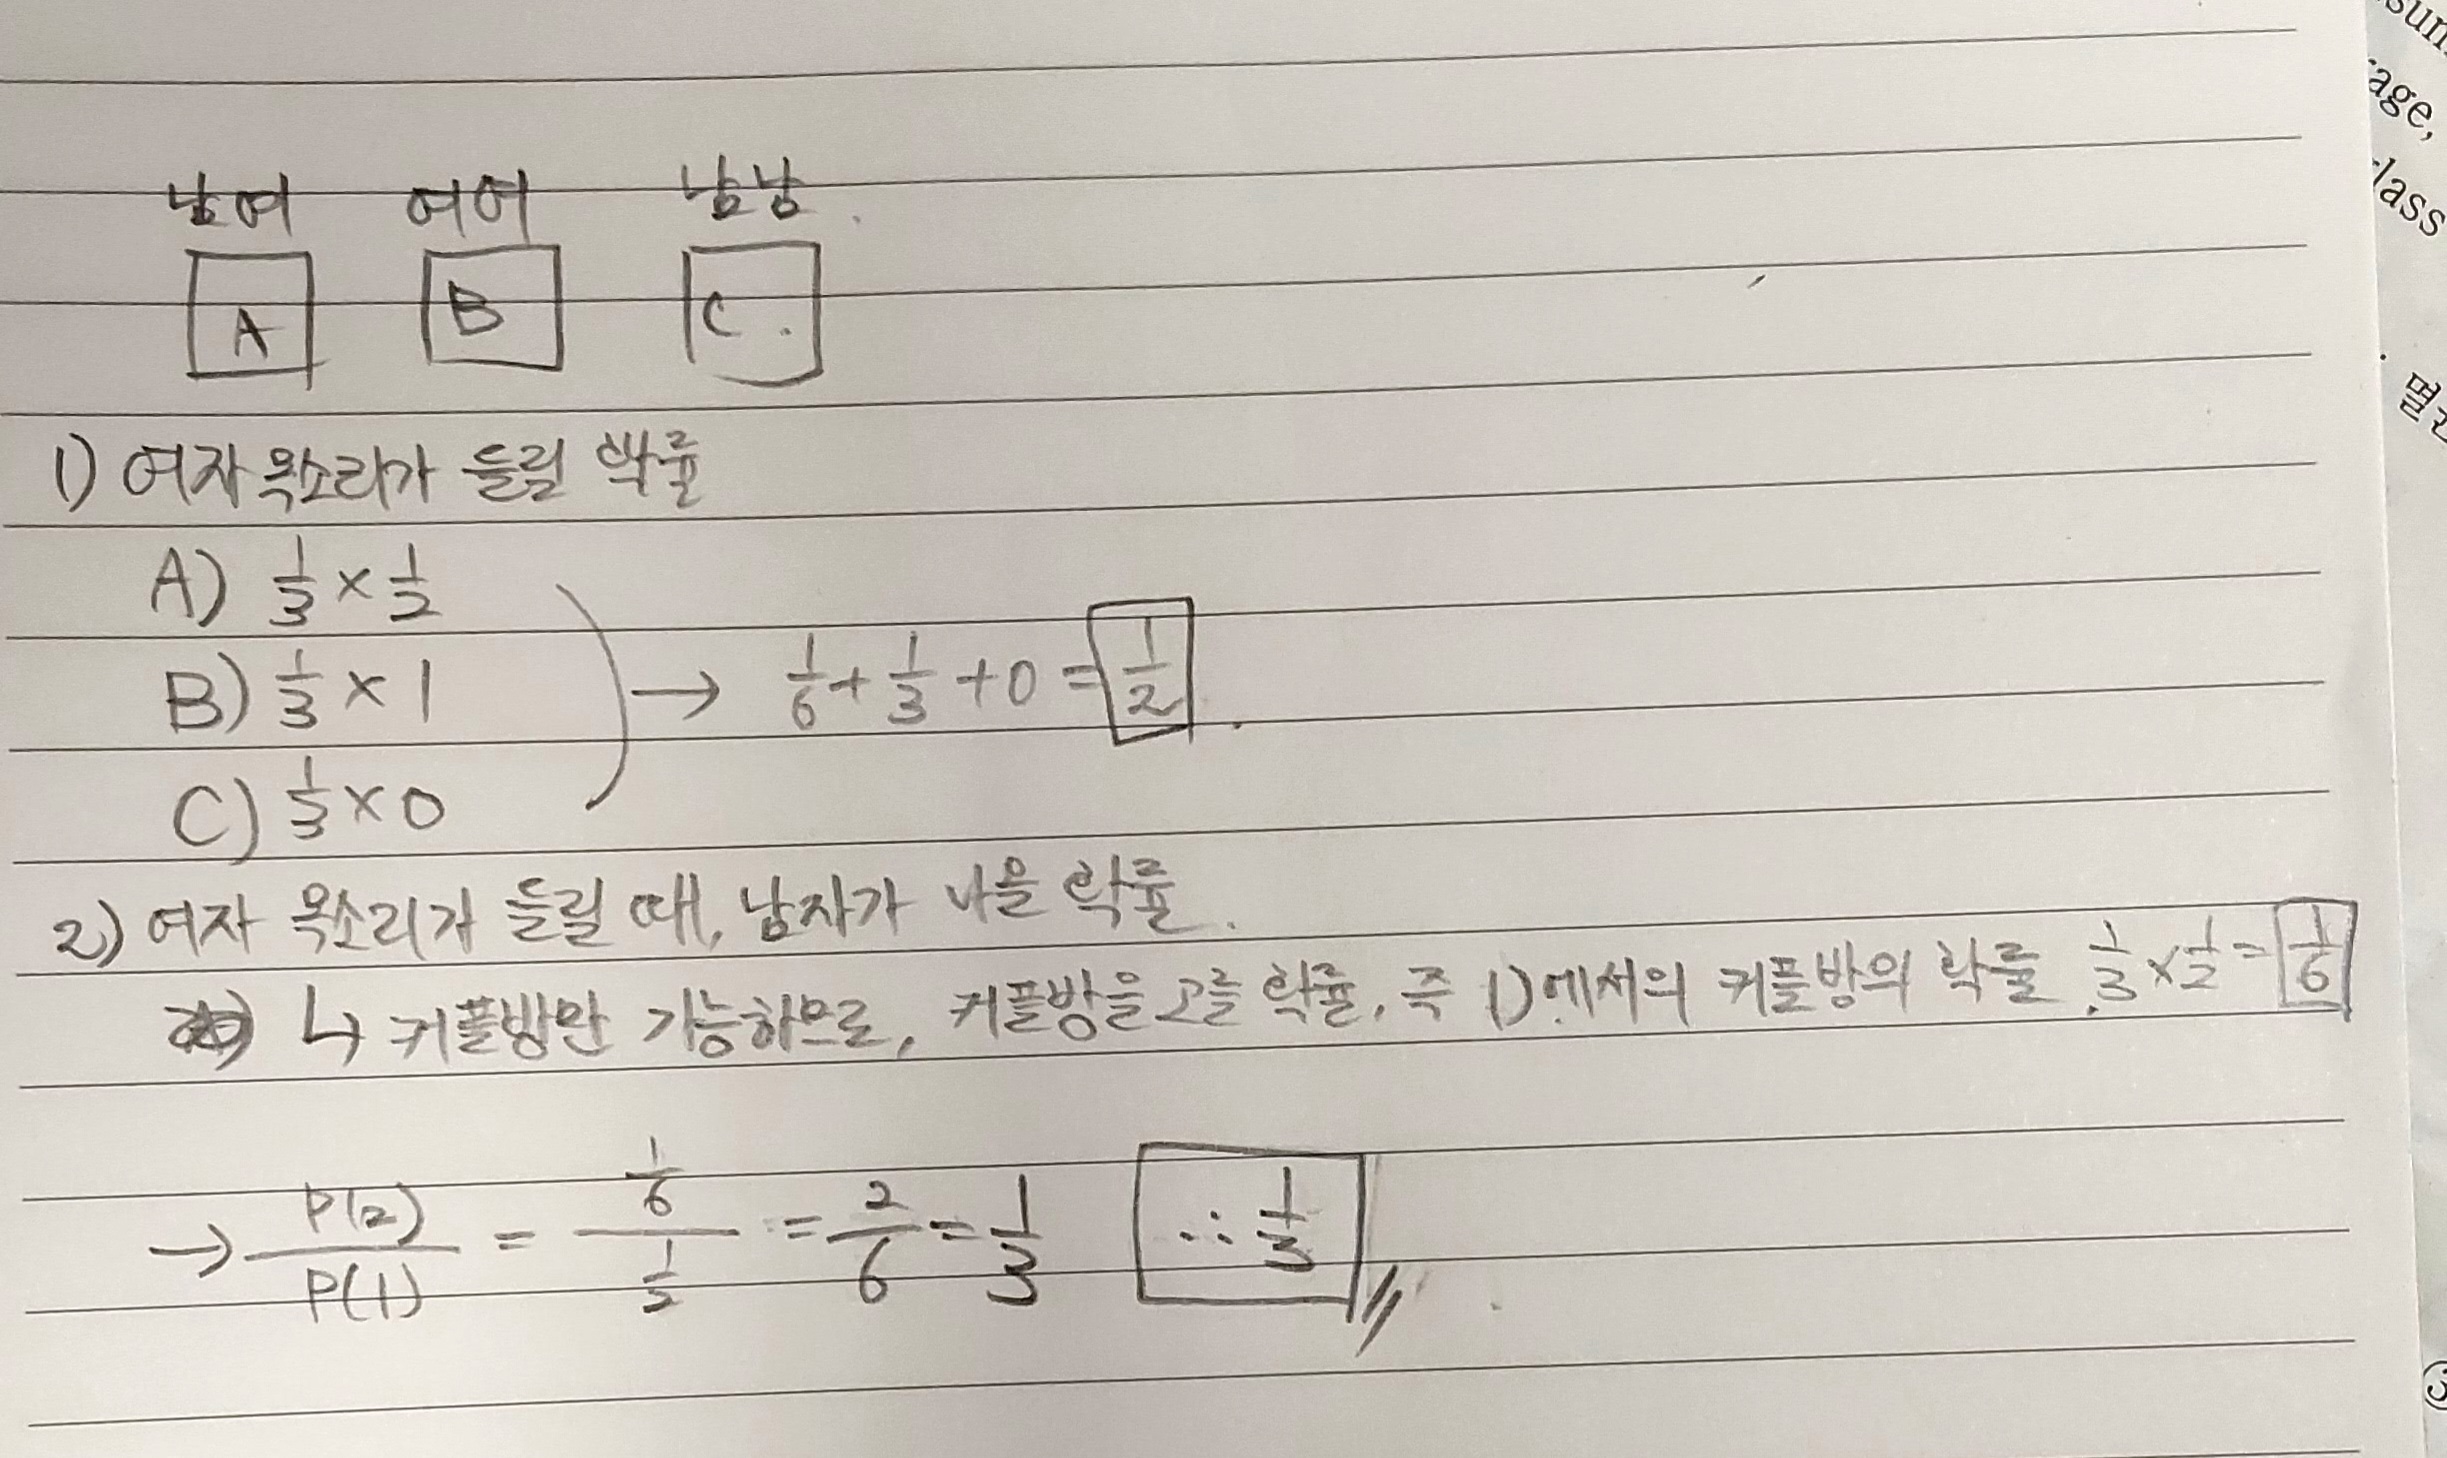 남여 여여 남남
A B C
1) 여자 목소리가 들릴 확률
A) 1/3 × 1/2
B) 1/3 × 1 → 1/6 + 1/3 + 0 = 1/2
C) 1/3 × 0
2) 여자 목소리가 들릴 때, 남자가 나올 확률.
↳ 커플방만 가능하므로, 커플방을 고를 확률, 즉 1)에서의 커플방의 확률 1/3 × 1/2 = 1/6
→ P(2)/P(1) = (1/6)/(1/2) = 2/6 = 1/3 ∴ 1/3
age,
lass
③